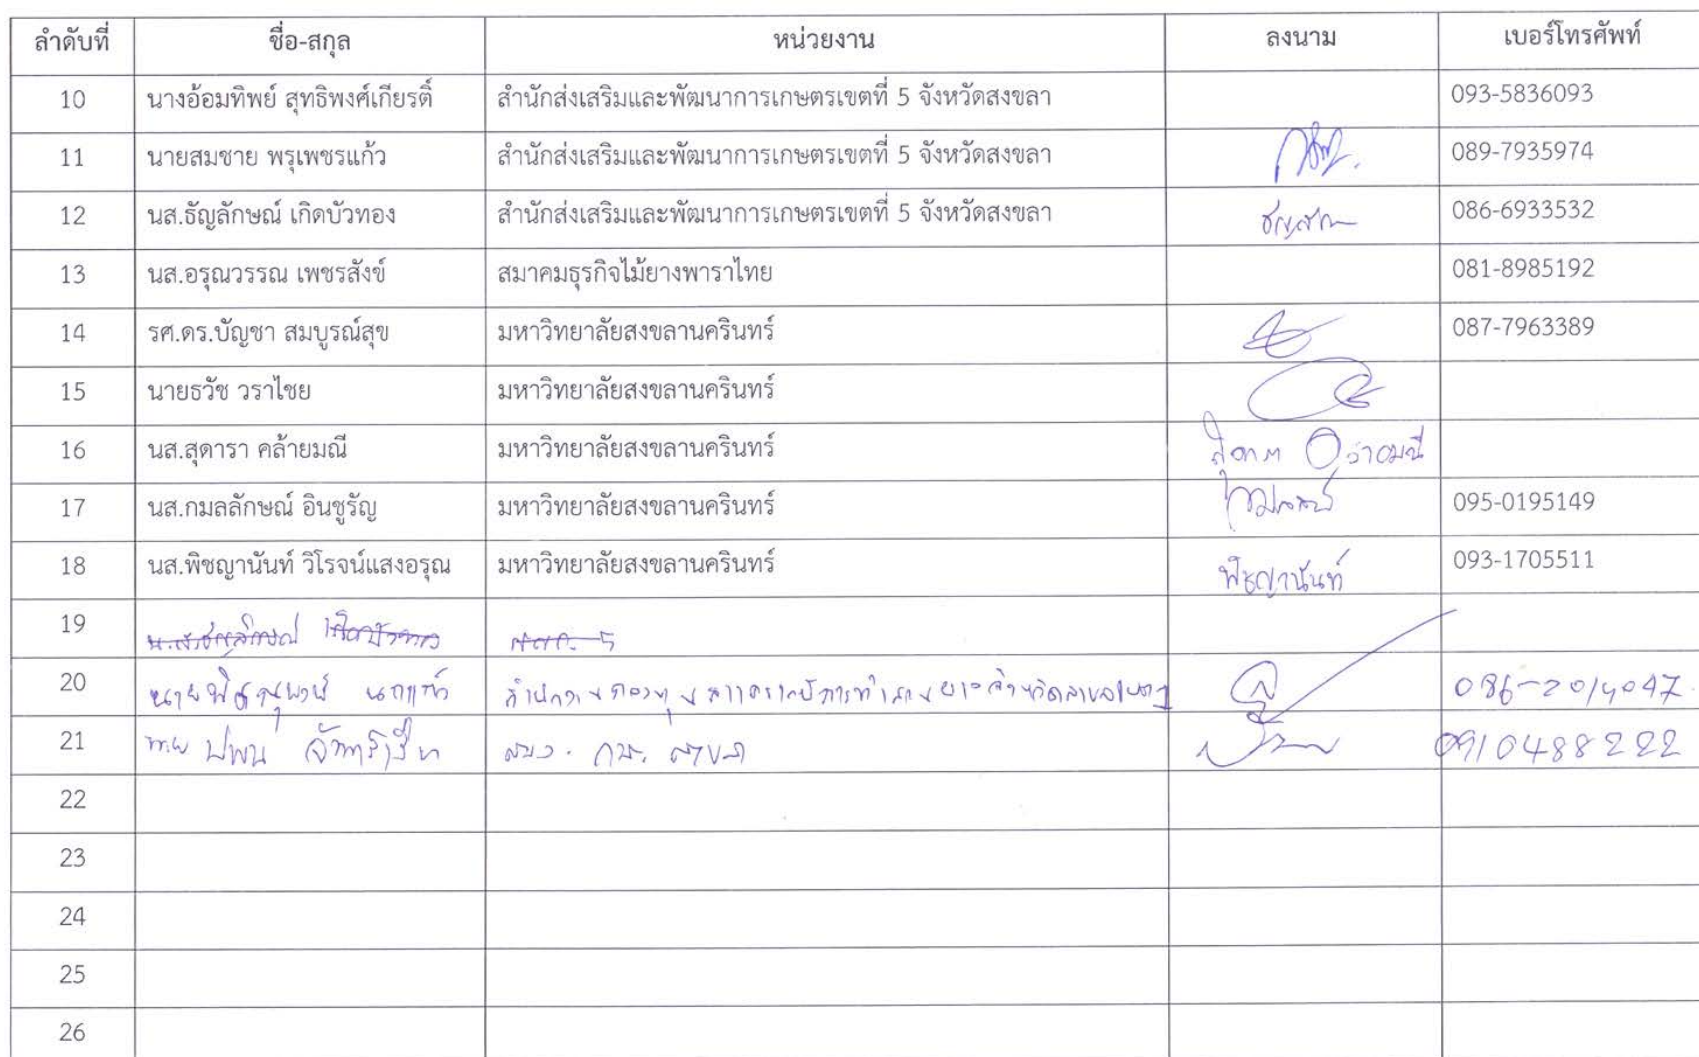 ลำดับที่ ชื่อ-สกุล หน่วยงาน ลงนาม เบอร์โทรศัพท์
10 นางอ้อมทิพย์ สุทธิพงศ์เกียรติ์ สำนักส่งเสริมและพัฒนาการเกษตรเขตที่ 5 จังหวัดสงขลา 093-5836093
11 นายสมชาย พรุเพชรแก้ว สำนักส่งเสริมและพัฒนาการเกษตรเขตที่ 5 จังหวัดสงขลา 089-7935974
12 นส.ธัญลักษณ์ เกิดบัวทอง สำนักส่งเสริมและพัฒนาการเกษตรเขตที่ 5 จังหวัดสงขลา 086-6933532
13 นส.อรุณวรรณ เพชรสังข์ สมาคมธุรกิจไม้ยางพาราไทย 081-8985192
14 รศ.ดร.บัญชา สมบูรณ์สุข มหาวิทยาลัยสงขลานครินทร์ 087-7963389
15 นายธวัช วราไชย มหาวิทยาลัยสงขลานครินทร์
16 นส.สุดารา คล้ายมณี มหาวิทยาลัยสงขลานครินทร์
17 นส.กมลลักษณ์ อินชูรัญ มหาวิทยาลัยสงขลานครินทร์ 095-0195149
18 นส.พิชญานันท์ วิโรจน์แสงอรุณ มหาวิทยาลัยสงขลานครินทร์ พิชญานันท์ 093-1705511
19
20 นาย 086-2014047
21 0910488222
22
23
24
25
26